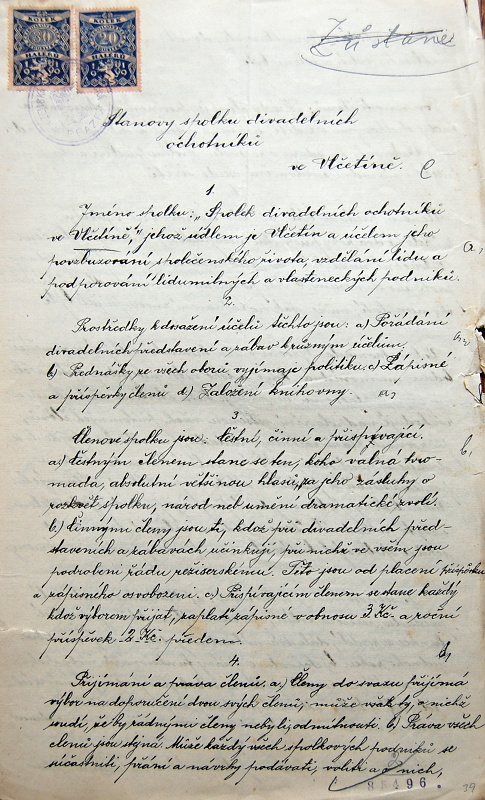 KOLEK
KOLEK
30
20
HALÉŘŮ
HALÉŘŮ
Zůstane
Stanovy spolku divadelních
ochotníků
ve Vlčetíně.
1.
Jméno spolku: „Spolek divadelních ochotníků
ve Vlčetíně," jehož sídlem je Vlčetín a účelem jeho
povzbuzování společenského života, vzdělání lidu a
podporování lidumilných a vlasteneckých podniků.
2.
Prostředky k dosažení účelů těchto jsou: a) Pořádání
divadelních představení a zábav k různým účelům.
b) Přednášky ze všech oborů vyjímaje politiku. c) Zápisné
a příspěvky členů d) Založení knihovny.
3.
Členové spolku jsou: Čestní, činní a přispívající.
a) Čestným členem stane se ten, koho valná hro-
mada, absolutní většinou hlasů, za jeho zásluhy o
rozkvět spolku, národ neb umění dramatické zvolí.
b) Činnými členy jsou ti, kdož při divadelních před-
staveních a zábavách účinkují, při nichž ve všem jsou
podrobeni řádu režiserskému. Tito jsou od placení příspěvku
a zápisného osvobozeni. c) Přispívajícím členem se stane každý
kdož výborem přijat, zaplatí zápisné v obnosu 3 Kč a roční
příspěvek 2 Kč. předem.
4.
Přijímání a práva členů: a) Členy do svazu přijímá
výbor na doporučení dvou svých členů; může však ty, o nichž
soudí, že by řádnými členy nebyli, odmítnouti. b) Práva všech
členů jsou stejná. Může každý všech spolkových podniků se
súčastniti, přání a návrhy podávati, voliti a
nich,
39